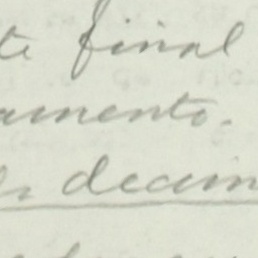 te final
amento.
decim